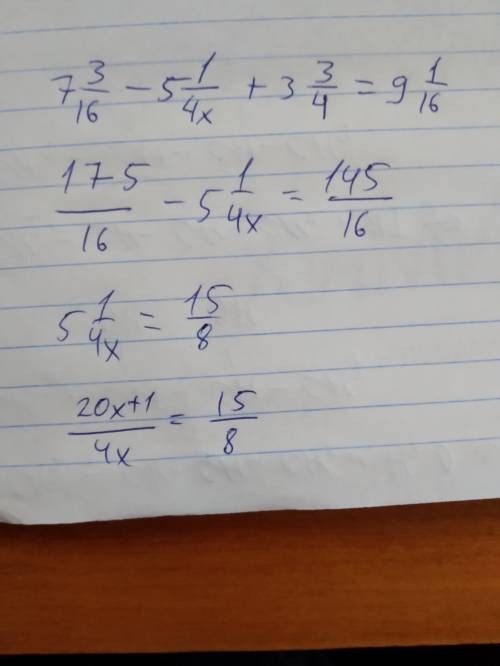 7 3/16 − 5 1/4x + 3 3/4 = 9 1/16
175/16 − 5 1/4x = 145/16
5 1/4x = 15/8
20x+1/4x = 15/8